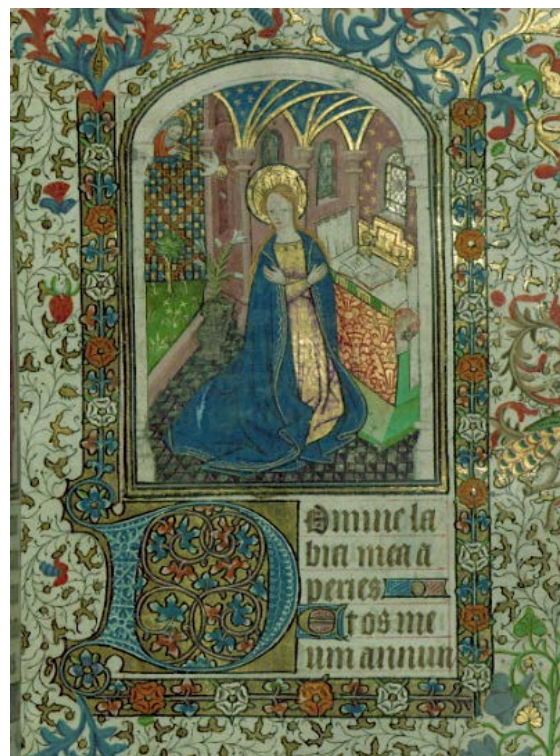 DOmine la
bia mea a
peries
Et os me
um annun